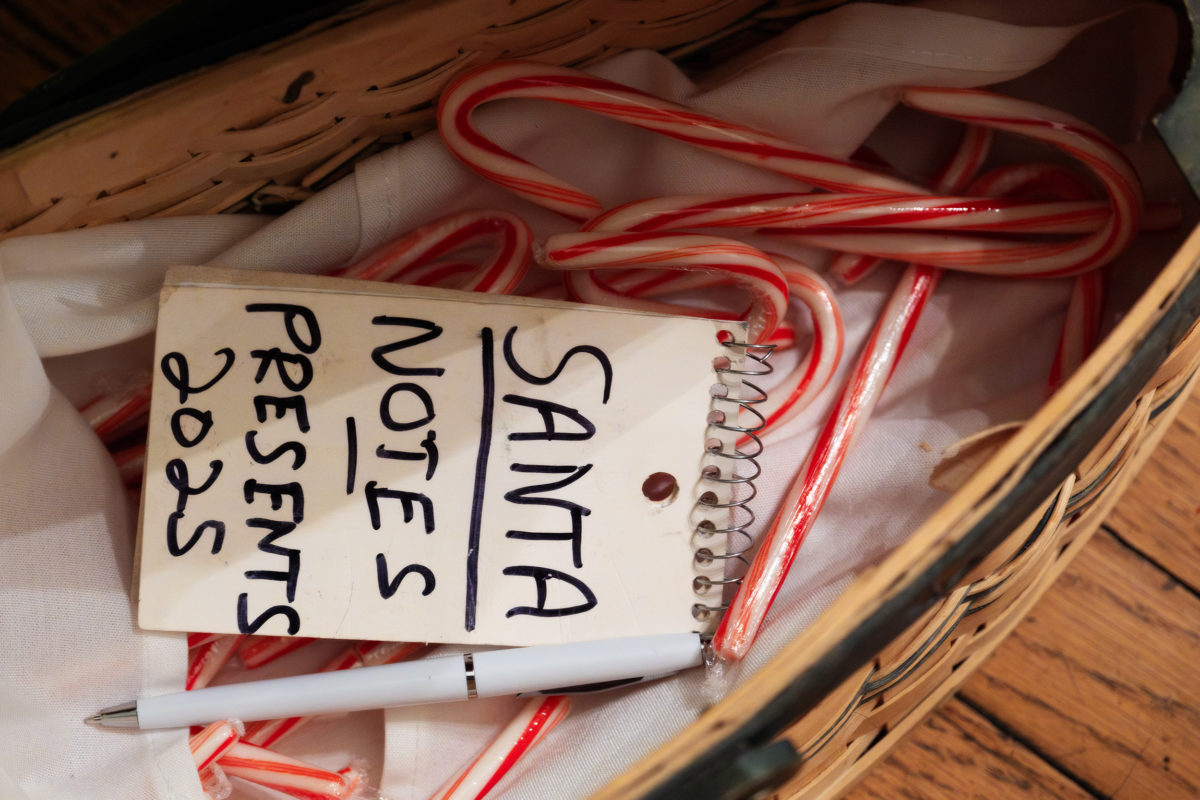 SANTA
NOTES
PRESENTS
2025